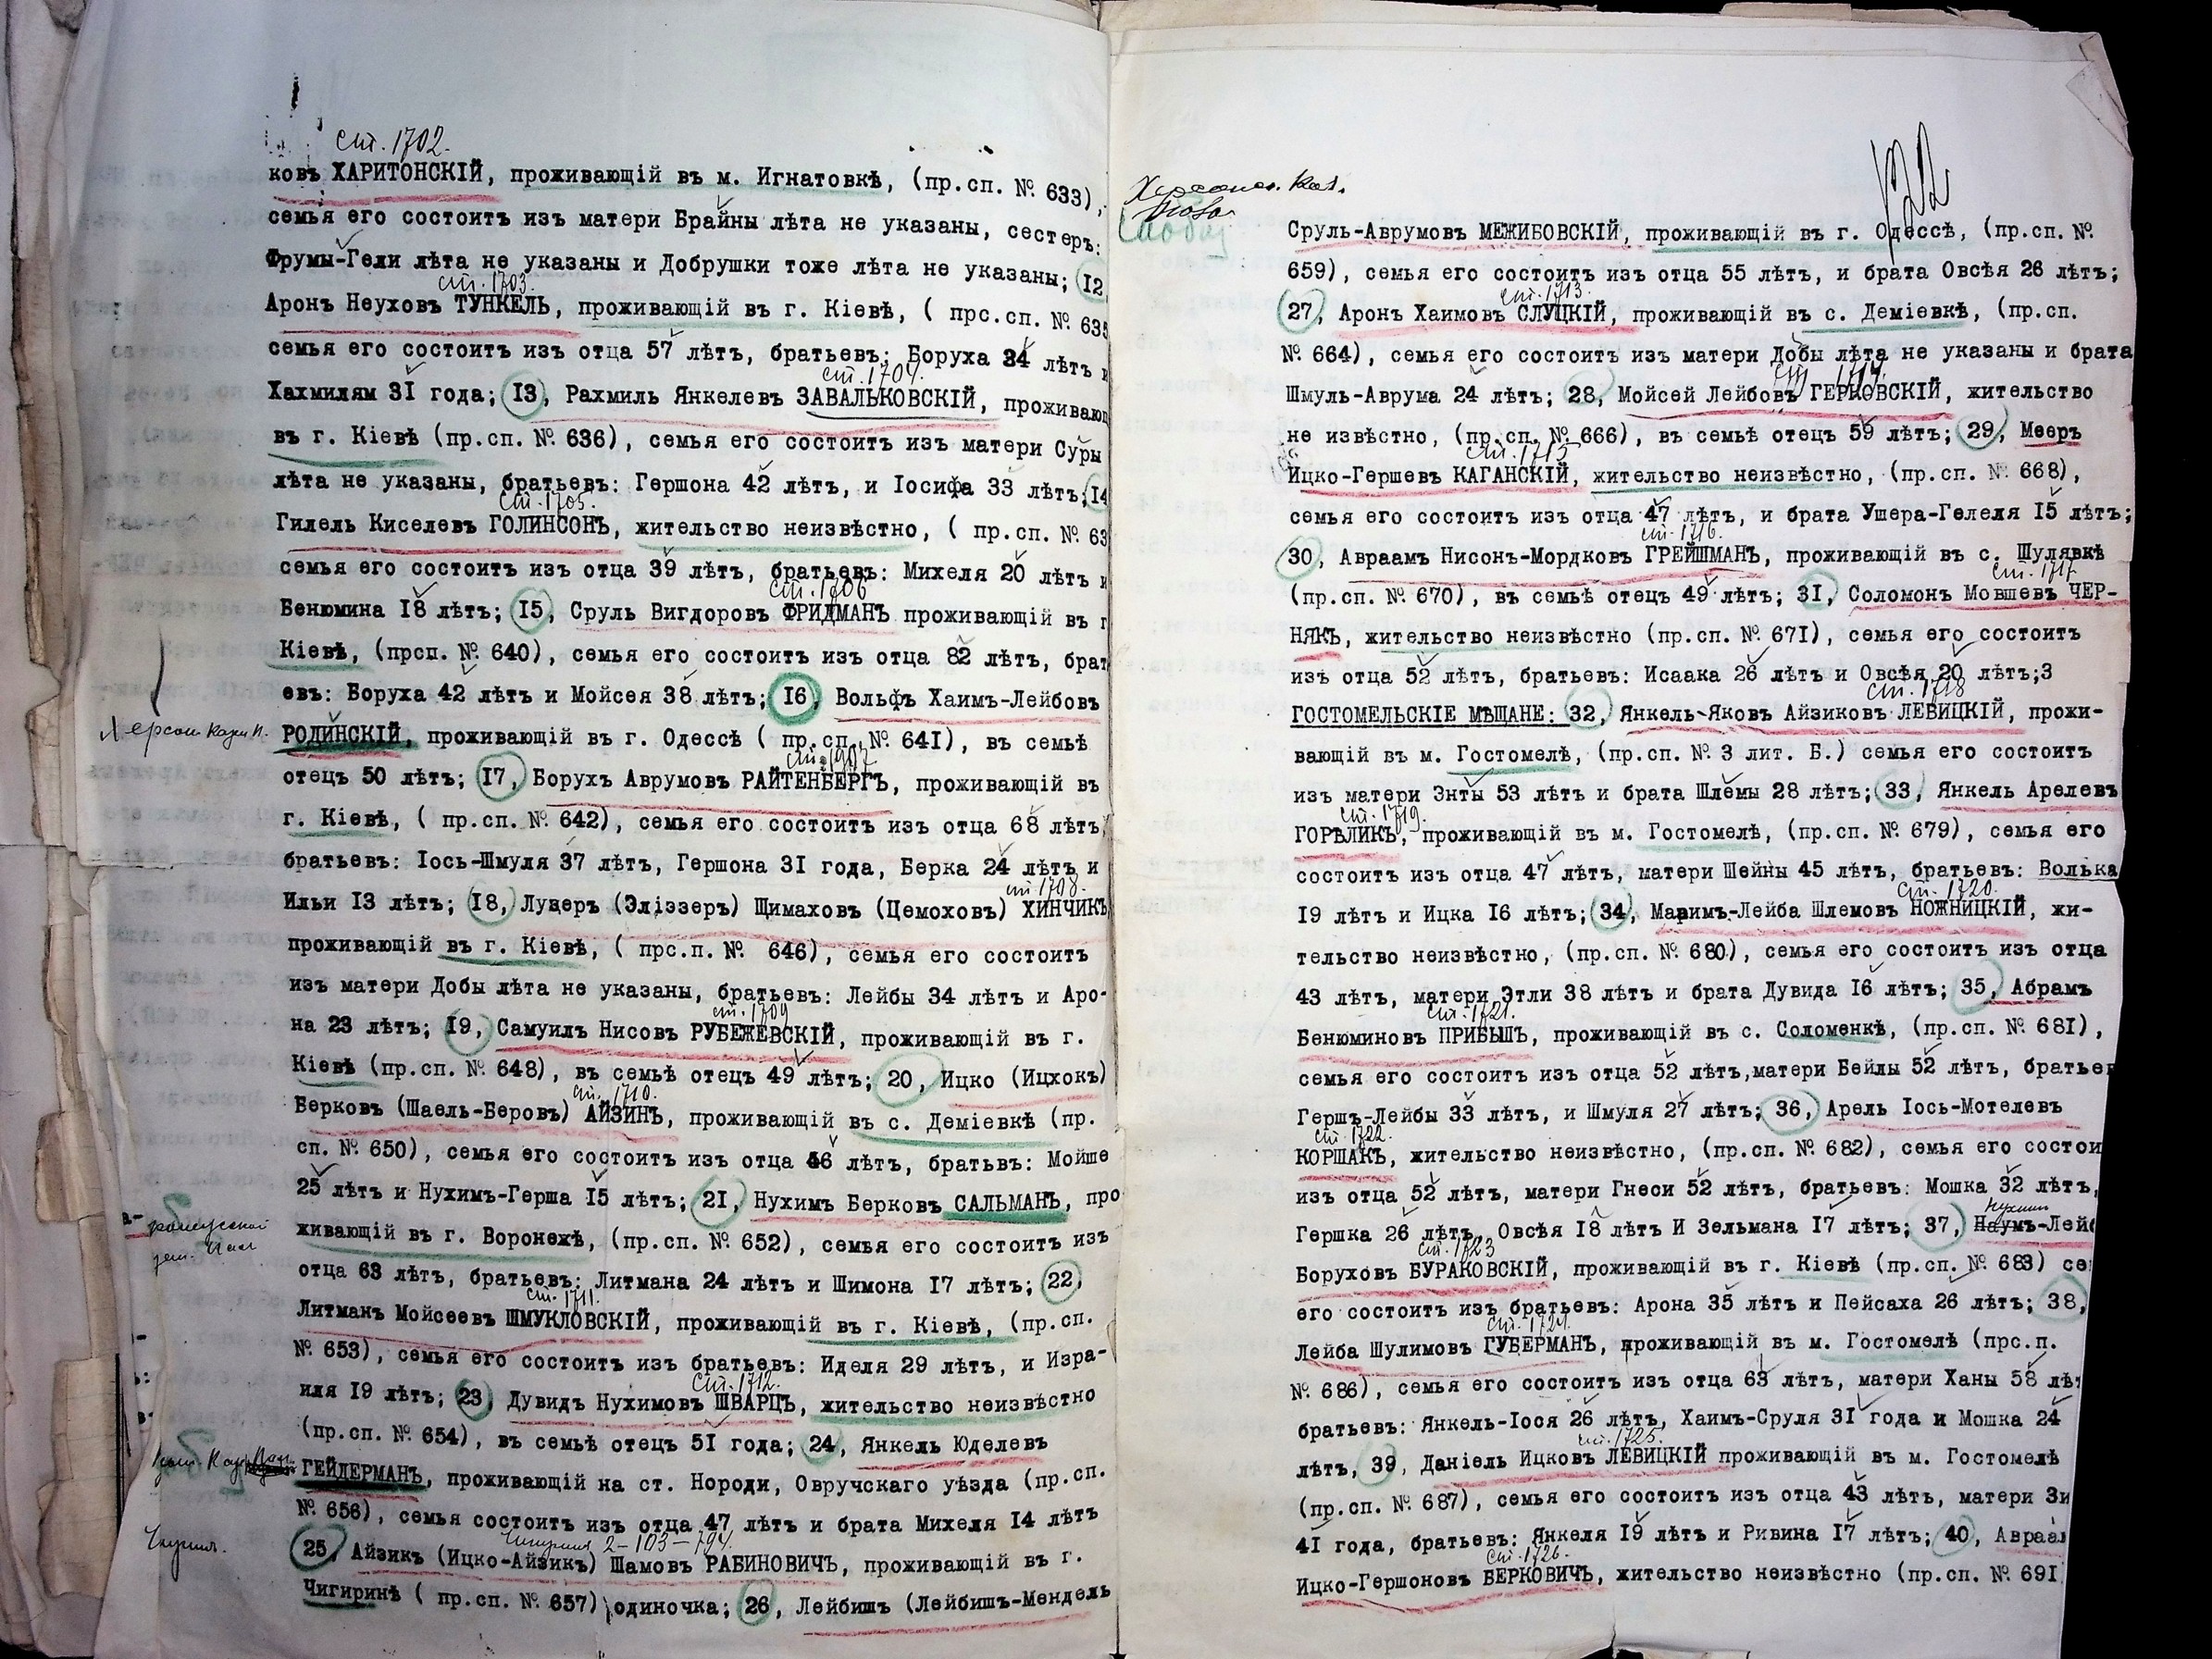 ст. 1702.
ковъ ХАРИТОНСКІЙ, проживающій въ м. Игнатовкѣ, (пр.сп. № 633),
семья его состоитъ изъ матери Брайны лѣта не указаны, сестеръ:
Фрумы-Гели лѣта не указаны и Добрушки тоже лѣта не указаны; 12
ст. 1703.
Аронъ Неуховъ ТУНКЕЛЬ, проживающій въ г. Кіевѣ, ( прс.сп. № 635
семья его состоитъ изъ отца 57 лѣтъ, братьевъ: Боруха 34 лѣтъ и
ст. 1704.
Хахмилям 31 года; 13, Рахмиль Янкелевъ ЗАВАЛЬКОВСКІЙ, проживающ
въ г. Кіевѣ (пр.сп. № 636), семья его состоитъ изъ матери Суры
лѣта не указаны, братьевъ: Гершона 42 лѣтъ, и Іосифа 33 лѣтъ; 14
ст. 1705.
Гилель Киселевъ ГОЛИНСОНЪ, жительство неизвѣстно, ( пр.сп. № 63
семья его состоитъ изъ отца 39 лѣтъ, братьевъ: Михеля 20 лѣтъ и
ст. 1706
Бенюмина 18 лѣтъ; 15, Сруль Вигдоровъ ФРИДМАНЪ проживающій въ г
Кіевѣ, (прсп. № 640), семья его состоитъ изъ отца 82 лѣтъ, брат
евъ: Боруха 42 лѣтъ и Мойсея 38 лѣтъ; 16, Вольфъ Хаимъ-Лейбовъ
РОДИНСКІЙ, проживающій въ г. Одессѣ ( пр.сп. № 641), въ семьѣ
отецъ 50 лѣтъ; 17, Борухъ Аврумовъ РАЙТЕНБЕРГЪ, проживающій въ
г. Кіевѣ, ( пр.сп. № 642), семья его состоитъ изъ отца 68 лѣтъ,
братьевъ: Іось-Шмуля 37 лѣтъ, Гершона 31 года, Берка 24 лѣтъ и
ст. 1708.
Ильи 13 лѣтъ; 18, Лузеръ (Эліззеръ) Щимаховъ (Цемоховъ) ХИНЧИКЪ
проживающій въ г. Кіевѣ, ( прс.п. № 646), семья его состоитъ
изъ матери Добы лѣта не указаны, братьевъ: Лейбы 34 лѣтъ и Аро-
ст. 1709
на 23 лѣтъ; 19, Самуилъ Нисовъ РУБЕЖЕВСКІЙ, проживающій въ г.
Кіевѣ (пр.сп. № 648), въ семьѣ отецъ 49 лѣтъ; 20, Ицко (Ицхокъ)
ст. 1710.
Берковъ (Шаель-Беровъ) АЙЗИНЪ, проживающій въ с. Деміевкѣ (пр.
сп. № 650), семья его состоитъ изъ отца 46 лѣтъ, братьвъ: Мойше
25 лѣтъ и Нухимъ-Герша 15 лѣтъ; 21, Нухимъ Берковъ САЛЬМАНЪ, про
живающій въ г. Воронежѣ, (пр.сп. № 652), семья его состоитъ изъ
отца 63 лѣтъ, братьевъ: Литмана 24 лѣтъ и Шимона 17 лѣтъ; 22,
ст. 1711.
Литманъ Мойсеевъ ШМУКЛОВСКІЙ, проживающій въ г. Кіевѣ, (пр.сп.
№ 653), семья его состоитъ изъ братьевъ: Иделя 29 лѣтъ, и Изра-
ст. 1712.
иля 19 лѣтъ; 23, Дувидъ Нухимовъ ШВАРЦЪ, жительство неизвѣстно
(пр.сп. № 654), въ семьѣ отецъ 51 года; 24, Янкель Юделевъ
ГЕЙДЕРМАНЪ, проживающій на ст. Нороди, Овручскаго уѣзда (пр.сп.
№ 656), семья состоитъ изъ отца 47 лѣтъ и брата Михеля 14 лѣтъ
2-103-194.
25, Айзикъ (Ицко-Айзикъ) Шамовъ РАБИНОВИЧЪ, проживающій въ г.
Чигиринѣ ( пр.сп. № 657) одиночка; 26, Лейбишъ (Лейбишъ-Мендель
122
Сруль-Аврумовъ МЕЖИБОВСКІЙ, проживающій въ г. Одессѣ, (пр.сп. №
659), семья его состоитъ изъ отца 55 лѣтъ, и брата Овсѣя 26 лѣтъ;
ст. 1713.
27, Аронъ Хаимовъ СЛУЦКІЙ, проживающій въ с. Деміевкѣ, (пр.сп.
№ 664), семья его состоитъ изъ матери Добы лѣта не указаны и брата
ст. 1714.
Шмуль-Аврума 24 лѣтъ; 28, Мойсей Лейбовъ ГЕРКОВСКІЙ, жительство
не извѣстно, (пр.сп. № 666), въ семьѣ отецъ 59 лѣтъ; 29, Мееръ
ст. 1715
Ицко-Гершевъ КАГАНСКІЙ, жительство неизвѣстно, (пр.сп. № 668),
семья его состоитъ изъ отца 47 лѣтъ, и брата Ушера-Гелеля 15 лѣтъ;
ст. 1716.
30, Авраамъ Нисонъ-Мордковъ ГРЕЙШМАНЪ, проживающій въ с. Шулявкѣ
ст. 1717
(пр.сп. № 670), въ семьѣ отецъ 49 лѣтъ; 31, Соломонъ Мовшевъ ЧЕР-
НЯКЪ, жительство неизвѣстно (пр.сп. № 671), семья его состоитъ
изъ отца 52 лѣтъ, братьевъ: Исаака 26 лѣтъ и Овсѣя 20 лѣтъ;3
ст. 1718
ГОСТОМЕЛЬСКІЕ МѢЩАНЕ: 32, Янкель-Яковъ Айзиковъ ЛЕВИЦКІЙ, прожи-
вающій въ м. Гостомелѣ, (пр.сп. № 3 лит. Б.) семья его состоитъ
изъ матери Энты 53 лѣтъ и брата Шлемы 28 лѣтъ; 33, Янкель Арелевъ
ст. 1719.
ГОРѢЛИКЪ, проживающій въ м. Гостомелѣ, (пр.сп. № 679), семья его
состоитъ изъ отца 47 лѣтъ, матери Шейны 45 лѣтъ, братьевъ: Волька
ст. 1720.
19 лѣтъ и Ицка 16 лѣтъ; 34, Маримъ-Лейба Шлемовъ НОЖНИЦКІЙ, жи-
тельство неизвѣстно, (пр.сп. № 680), семья его состоитъ изъ отца
43 лѣтъ, матери Этли 38 лѣтъ и брата Дувида 16 лѣтъ; 35, Абрамъ
ст. 1721.
Бенюминовъ ПРИБЫШЪ, проживающій въ с. Соломенкѣ, (пр.сп. № 681),
семья его состоитъ изъ отца 52 лѣтъ,матери Бейлы 52 лѣтъ, братьев
Гершъ-Лейбы 33 лѣтъ, и Шмуля 27 лѣтъ; 36, Арель Іось-Мотелевъ
ст. 1722.
КОРШАКЪ, жительство неизвѣстно, (пр.сп. № 682), семья его состои
изъ отца 52 лѣтъ, матери Гнеси 52 лѣтъ, братьевъ: Мошка 32 лѣтъ,
Нухим
Гершка 26 лѣтъ, Овсѣя 18 лѣтъ И Зельмана 17 лѣтъ; 37, Наумъ-Лейб
ст. 1723
Боруховъ БУРАКОВСКІЙ, проживающій въ г. Кіевѣ (пр.сп. № 683) се
его состоитъ изъ братьевъ: Арона 35 лѣтъ и Пейсаха 26 лѣтъ; 38,
ст. 1724.
Лейба Шулимовъ ГУБЕРМАНЪ, проживающій въ м. Гостомелѣ (прс.п.
№ 686), семья его состоитъ изъ отца 63 лѣтъ, матери Ханы 58 лѣт
братьевъ: Янкель-Іося 26 лѣтъ, Хаимъ-Сруля 31 года и Мошка 24
ст. 1725.
лѣтъ, 39, Даніель Ицковъ ЛЕВИЦКІЙ проживающій въ м. Гостомелѣ
(пр.сп. № 687), семья его состоитъ изъ отца 43 лѣтъ, матери Зи
41 года, братьевъ: Янкеля 19 лѣтъ и Ривина 17 лѣтъ; 40, Авраам
ст. 1726.
Ицко-Гершоновъ БЕРКОВИЧЪ, жительство неизвѣстно (пр.сп. № 691